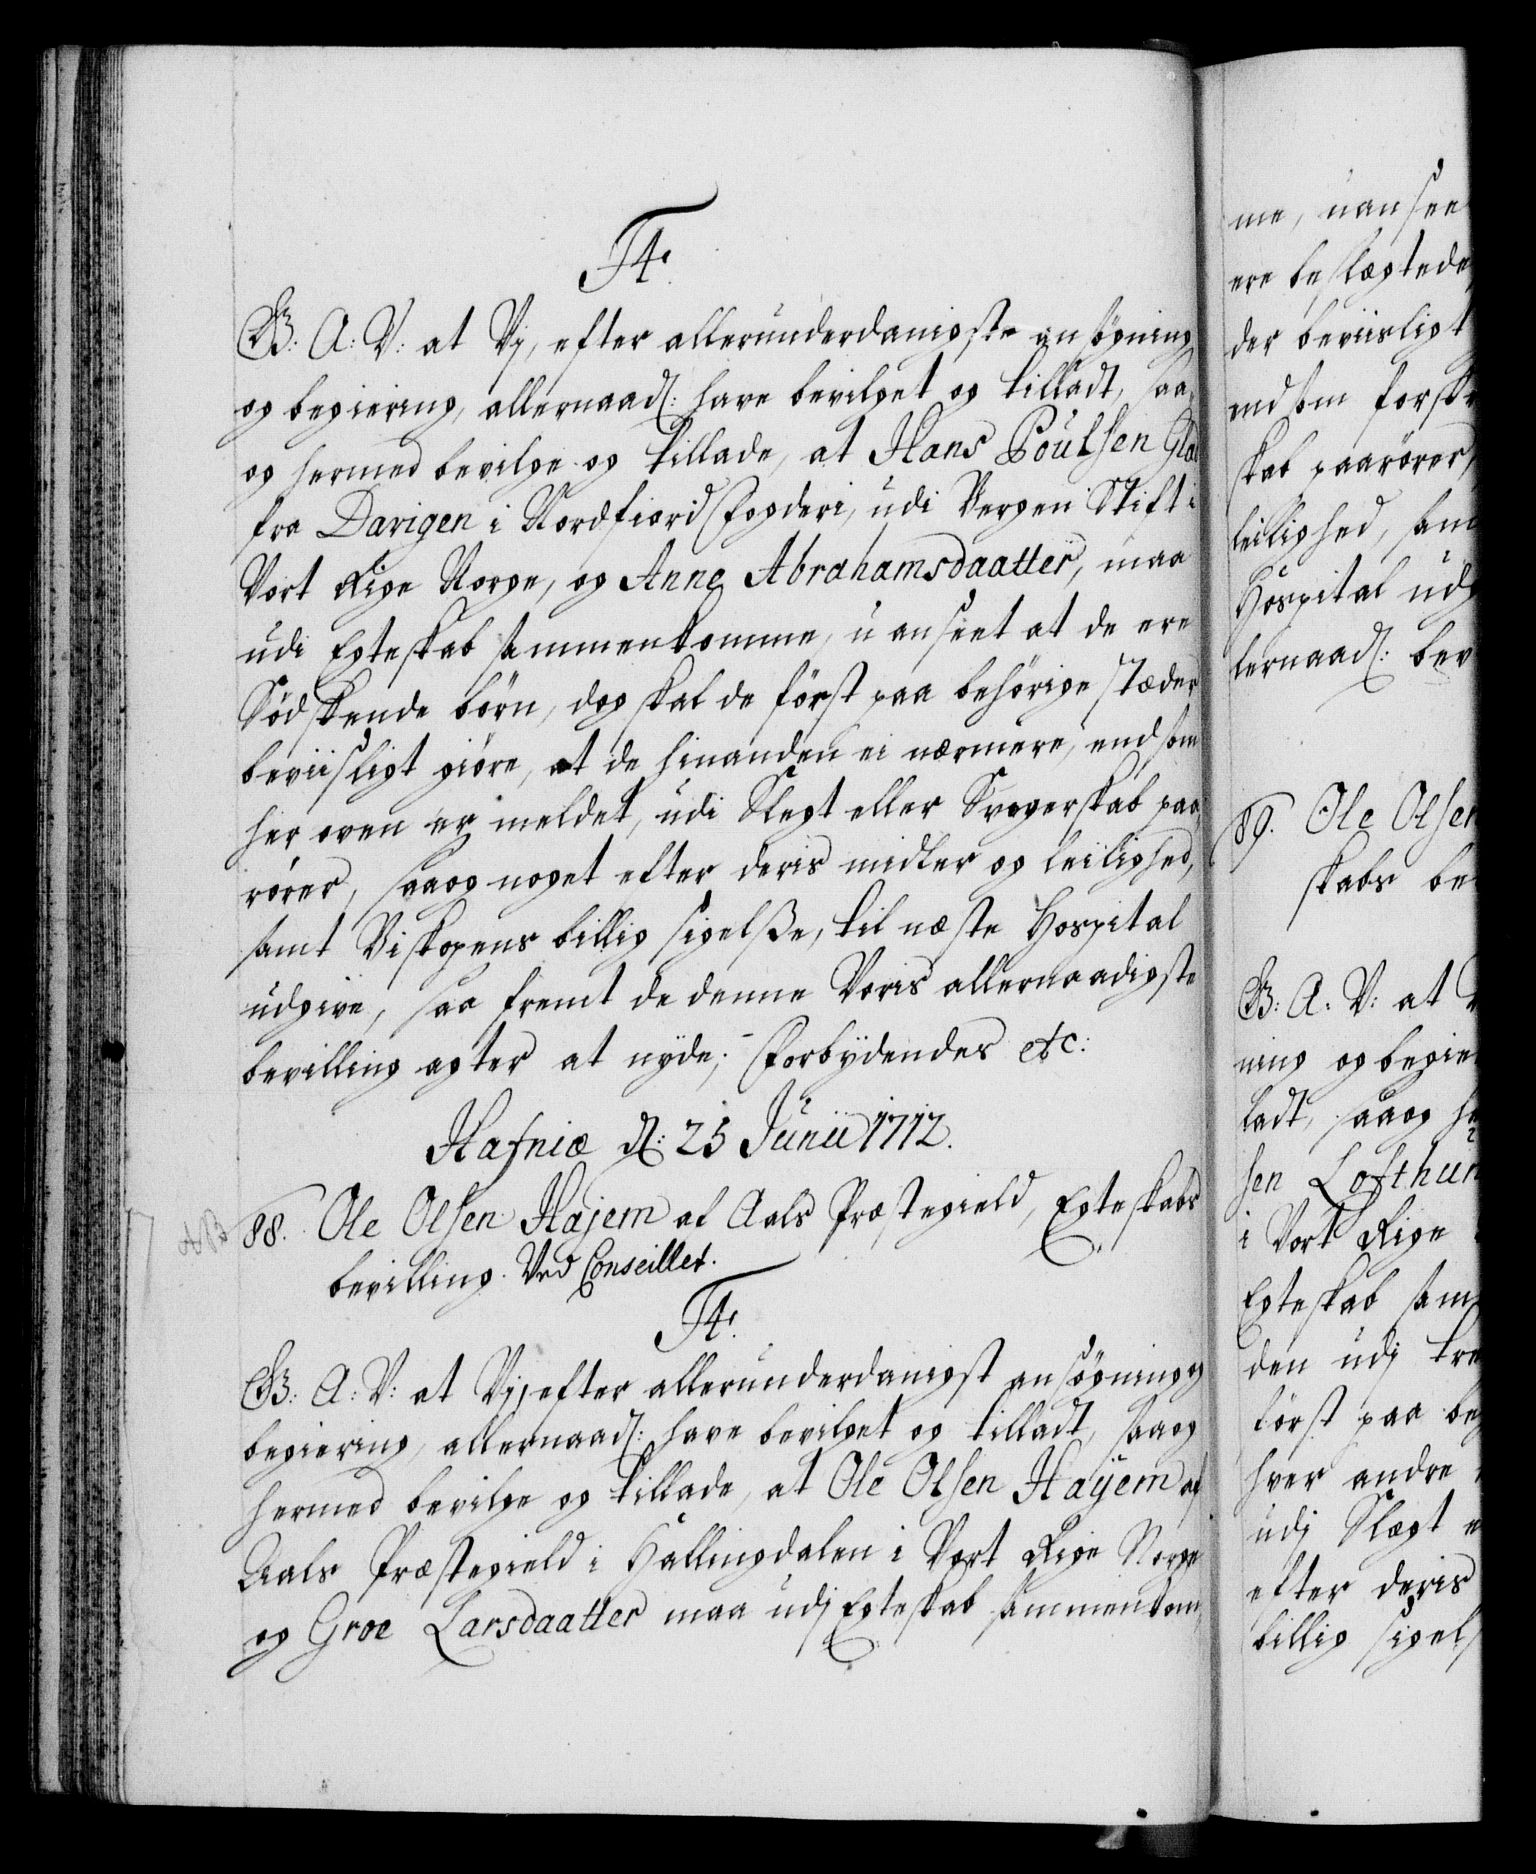 F4.
G: A: V: at Vj, efter allerunderdanigste ansøgning
og begiering, allernaad: have bevilget og tilladt, saa
og hermed bevilge og tillade, at Hans Poulsen
fra Davigen i Nordfiord Fogderi, udi Bergen Stift i
Vort Rige Norge, og Anne Abrahamsdaatter, maa
udi Egteskab sammenkomme, uanseet at de ere
Södskende börn, dog skal de först paa behörige stæder
beviisligt giöre, at de hinanden ei nærmere, end som
her oven er meldet, udi Slegt eller Svogerskab paa
rörer, saa og noget efter deris midler og leilighed,
samt Biskopens billig sigelsse, til næste Hospital
udgive, saa fremt de denne Voris allernaadigste
bevilling agter at nyde; Forbydendes etc:
Hafniæ d: 25 Junii 1712.
88. Ole Olsen Hajem af Aals Præstegield, Egteskabs
bevilling. Ved Conseillet.
F4.
G: A: V: at Vj, efter allerunderdanigst ansögning og
begiering, allernaad: have bevilget og tilladt, saa og
hermed bevilge og tillade, at Ole Olsen Hayem af
Aals Præstegield i Hallingdalen i Vort Rige Norge
og Groe Larsdaatter maa udj Egteskab sammenkom,
me, uansee
ere beslægtede
der beviisligt
end som
skab paarörer,
leilighed, sam
Hospital udg
lernaad: bev
89. Ole Olsen
skabs be
G: A: V: at V
ning og begie
ladt, saa og he
sen Lofthun
i Vort Rige
Egteskab sam
den udj tre
först paa be
hver andre
udj Slægt e
efter deris
billig sigels